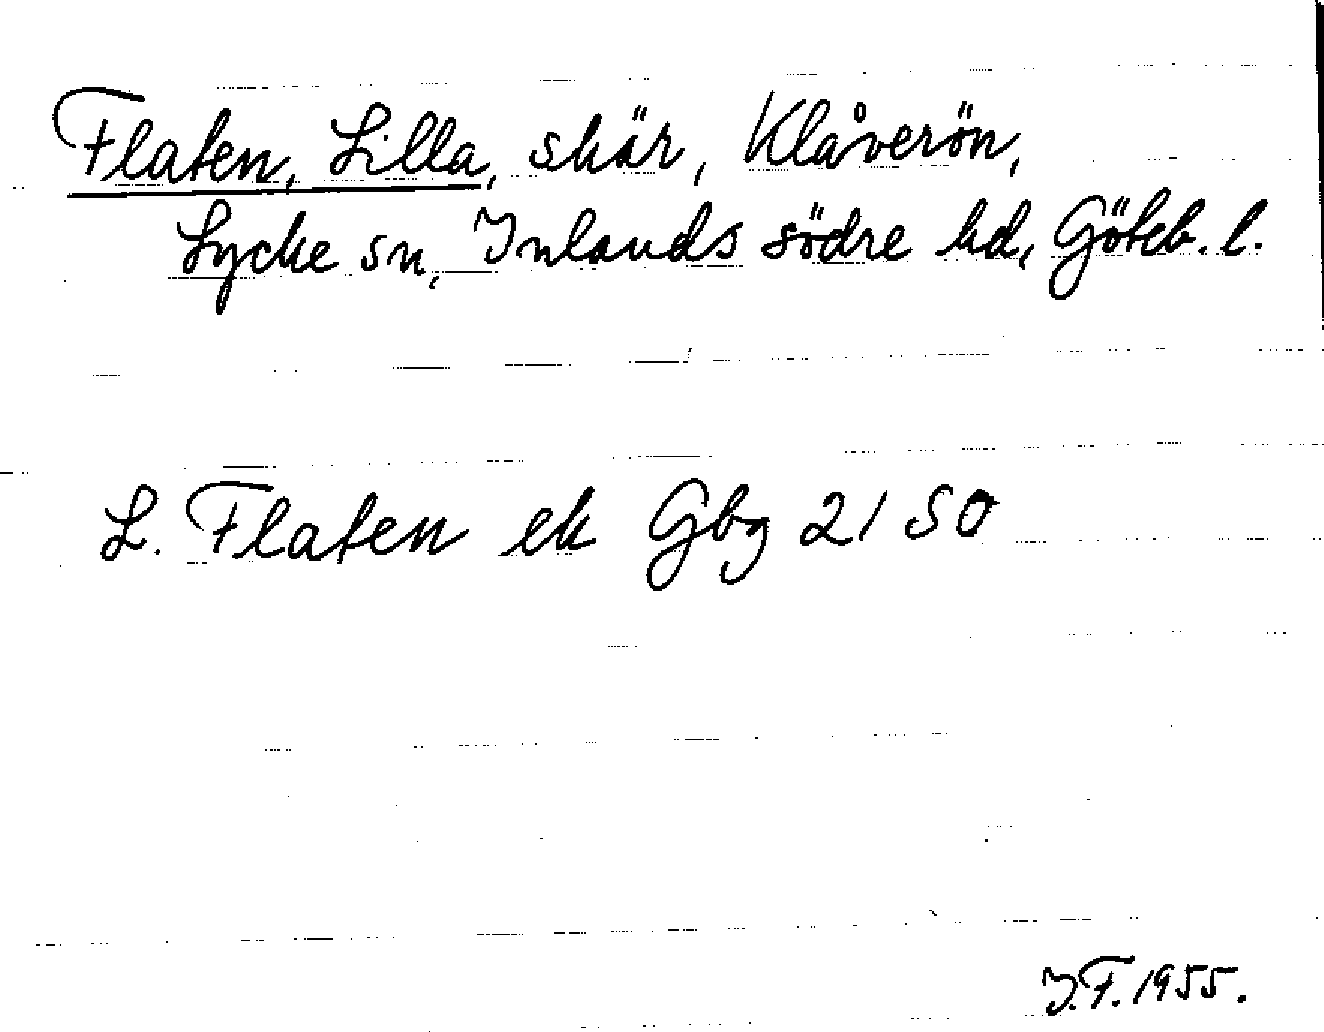 Flaten, Lilla, skär, Klåverön,
Lycke sn, Inlands södre hd, Göteb. l.
L. Flaten ek Gbg 21 SO
I.F. 1955.